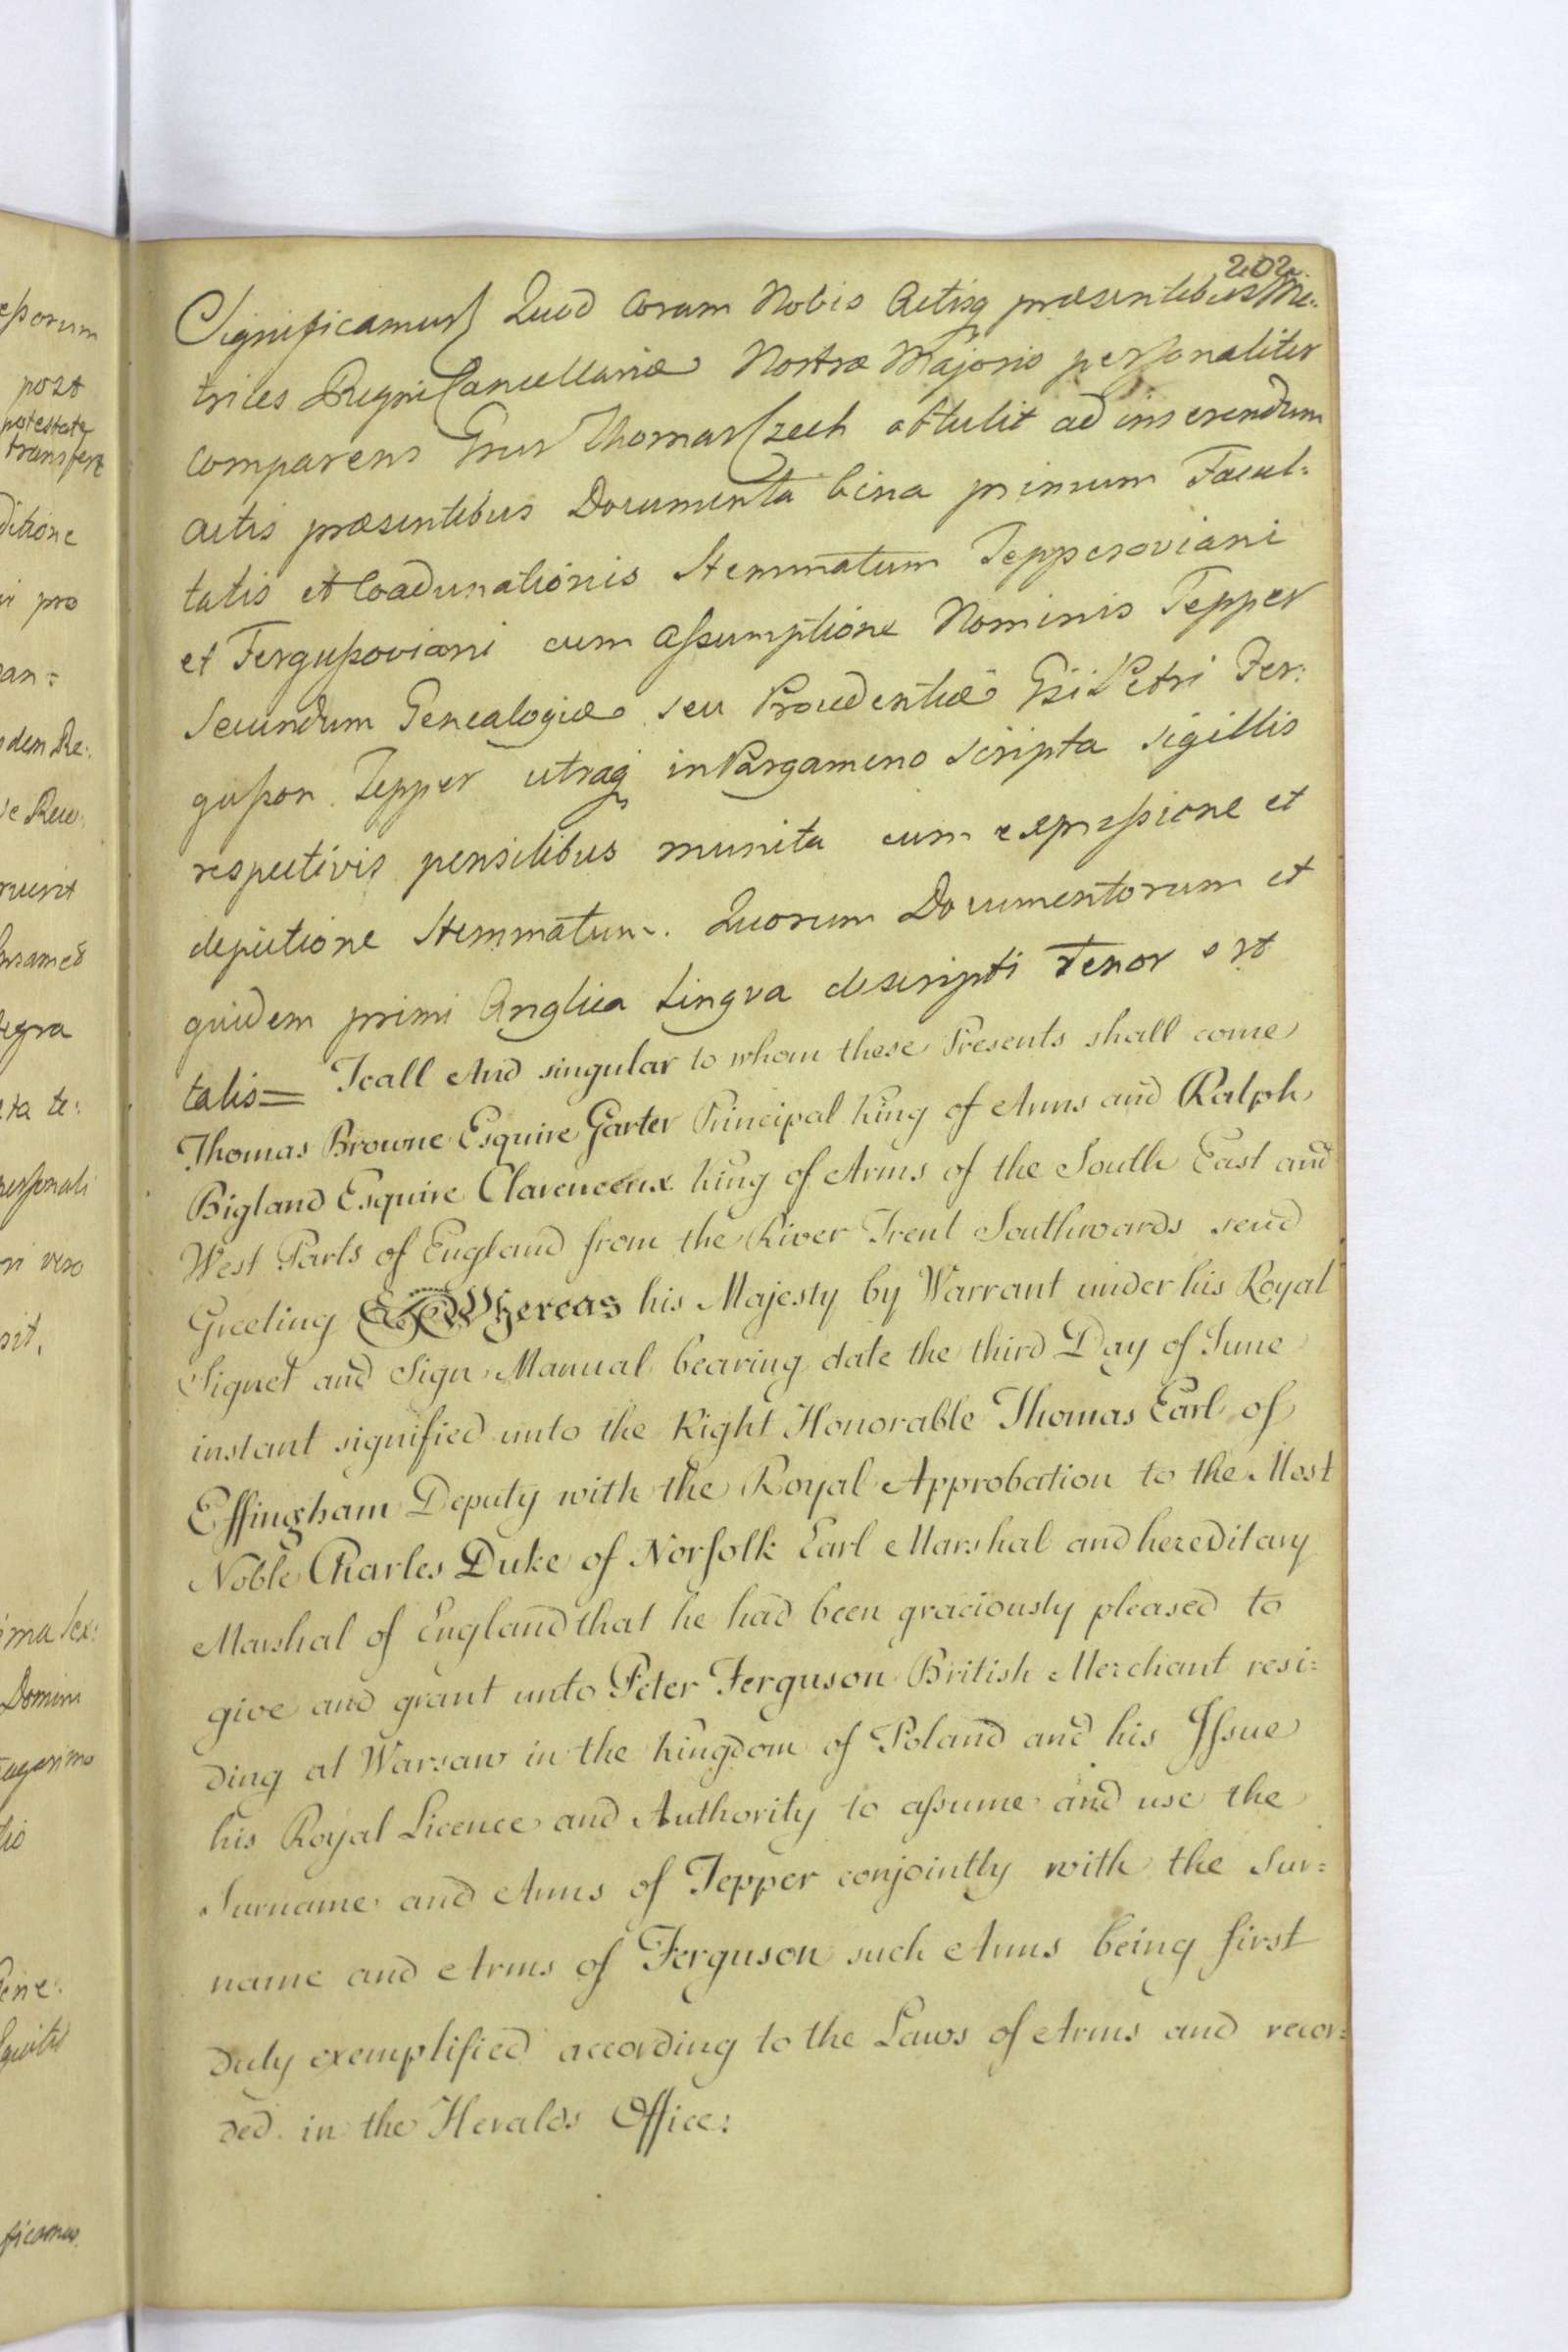 202.
Significamus Quod Coram Nobis Actisq præsentibus Me-
trices Regni Cancellariæ Nostræ Majoris personaliter
comparens Grus Thomas Czech obtulit ad inserendum
actis præsentibus Documenta bina primum Facul-
tatis et Coadunationis Stemmatum Tepperoviani
et Fergusoviani cum assumptione Nominis Tepper
Secundum Genealogiæ seu Procedentiæ Gsi Petri Fer-
guson Tepper utraq in Pargameno Scripta sigillis
respectivis pensilibus munita cum expressione et
depictione Stemmatum. Quorum Documentorum et
quidem primi Anglica Lingva descripti Tenor est
talis= To all And singular to whom these Presents shall come
Thomas Browne Esquire Garter Principal King of Arms and Ralph
Bigland Esquire Clarenceux King of Arms of the South East and
West Parts of England from the River Trent Southwards send
Greeting Whereas his Majesty by Warrant under his Royal
Signet and Sign Manual bearing date the third Day of June
instant signified unto the Right Honorable Thomas Earl of
Effingham Deputy with the Royal Approbation to the Most
Noble Charles Duke of Norfolk Earl Marshal and hereditary
Marshal of England that he had been graciously pleased to
give and grant unto Peter Ferguson British Merchant resi=
ding at Warsaw in the Kingdom of Poland and his Issue
his Royal Licence and Authority to assume and use the
Surname and Arms of Tepper conjointly with the Sur=
name and Arms of Ferguson such Arms being first
duly exemplified according to the Laws of Arms and recor=
ded in the Heralds Office: